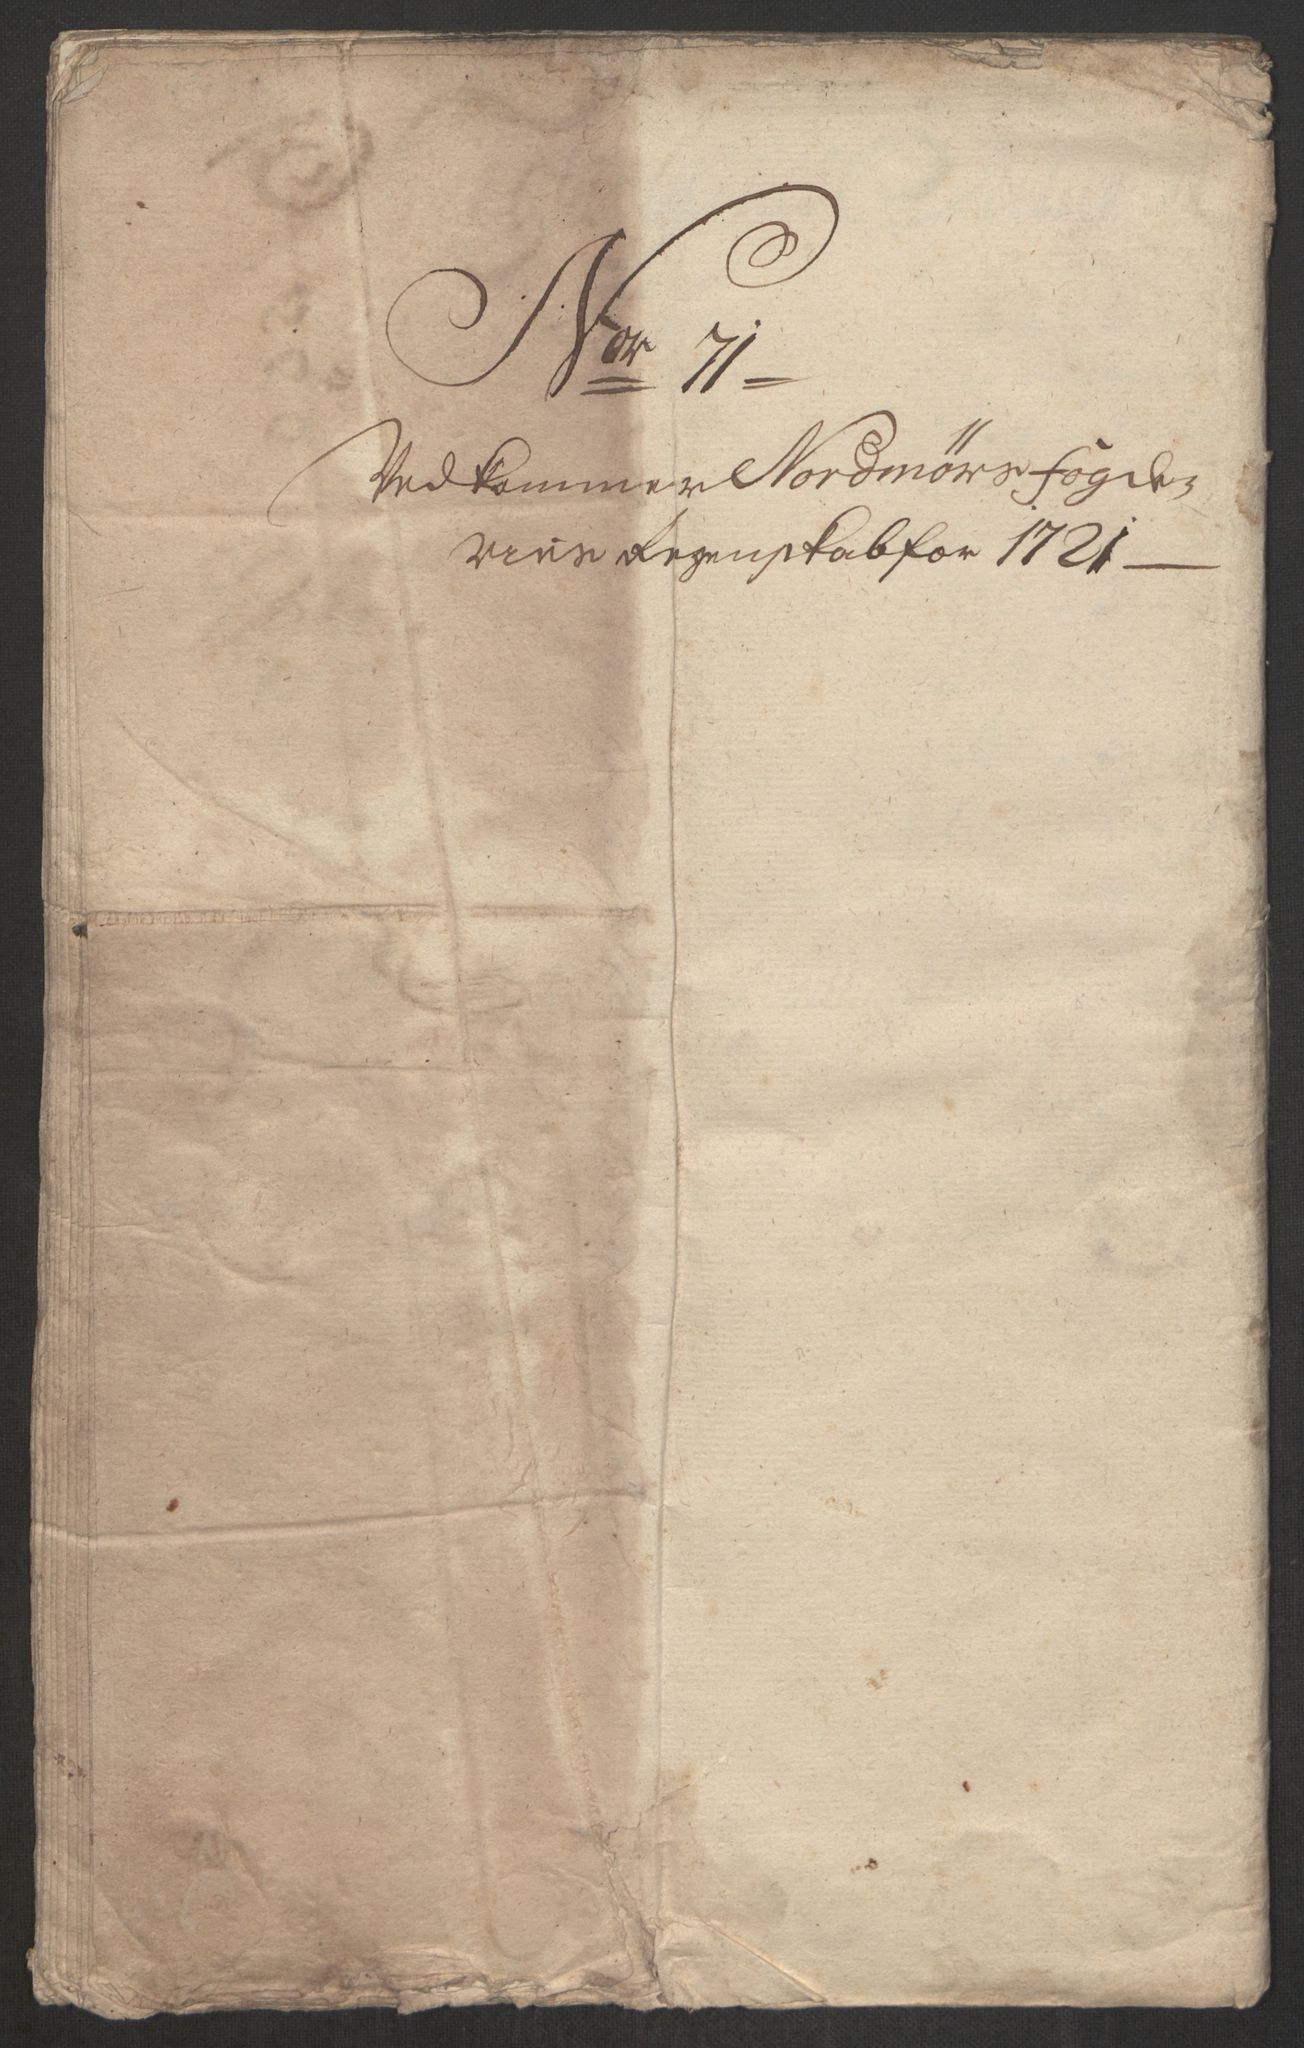 Nor 71
Vedkommer Nordmørs fogde-
riets Regenskab for 1721